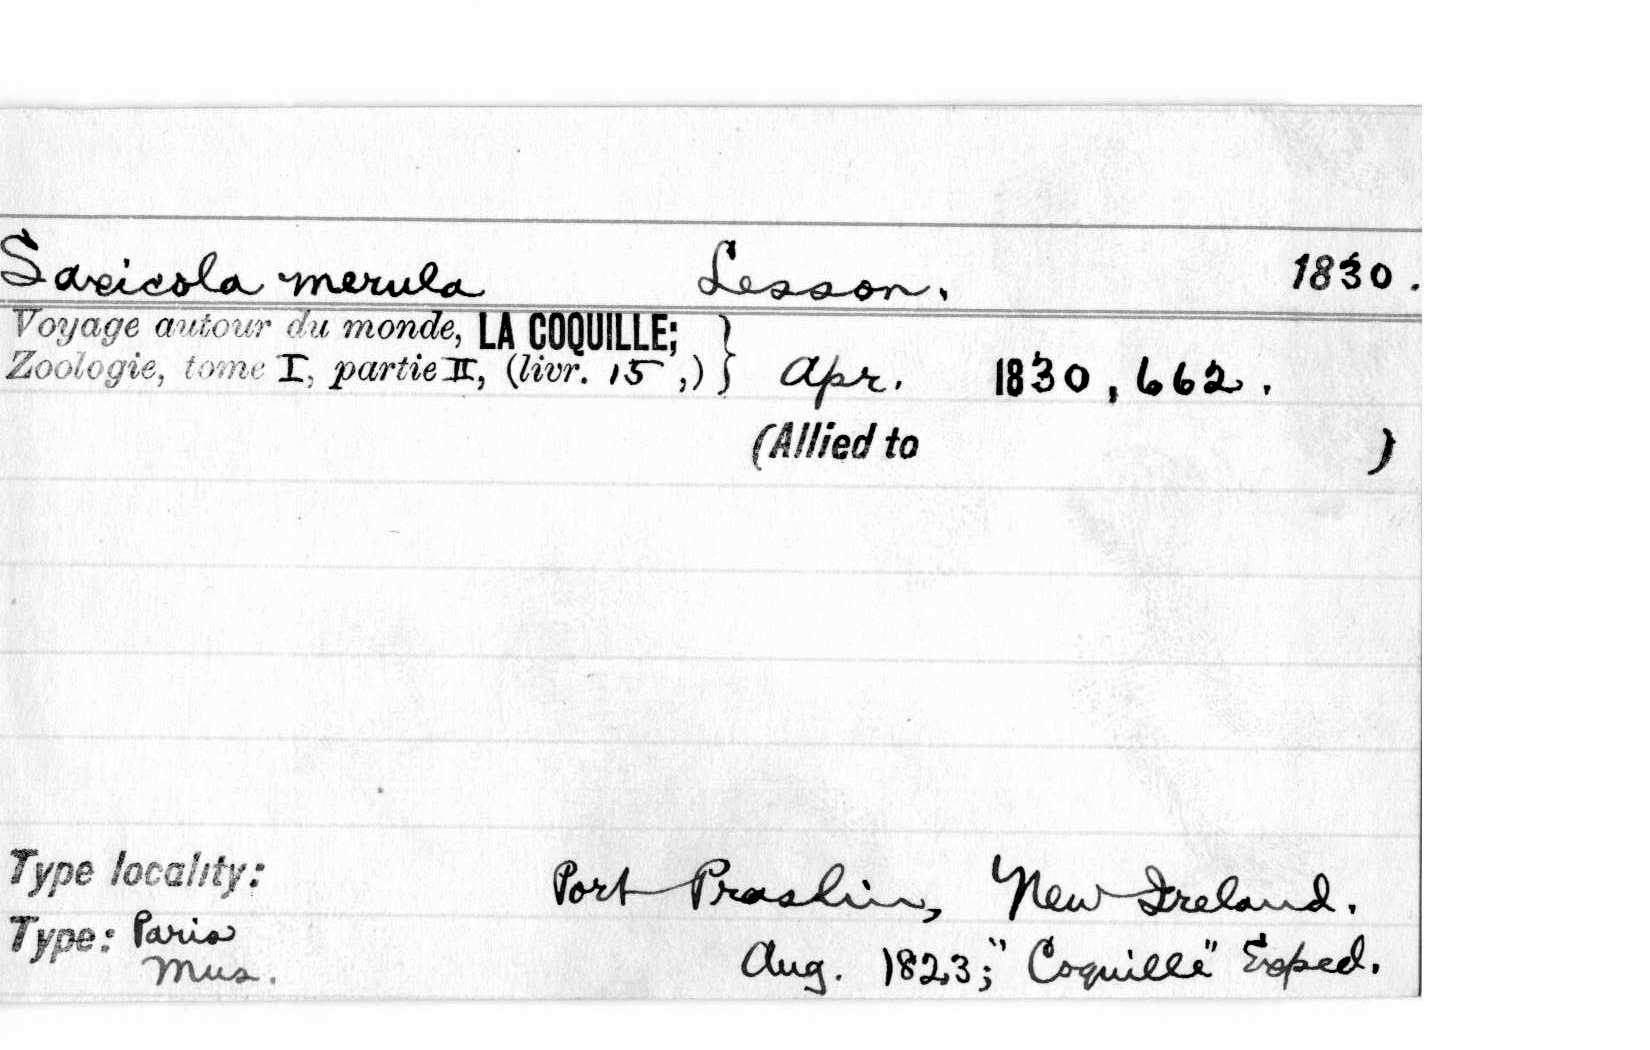 Saxicola merula Lesson. 1830.
Voyage autour du monde, LA COQUILLE;
Zoologie, tome I, partie II, (livr. 15,) } Apr. 1830, 662.
(Allied to )
Type locality: Port Praslin, New Ireland.
Type: Paris
Mus. Aug. 1823; "Coquille" Exped.